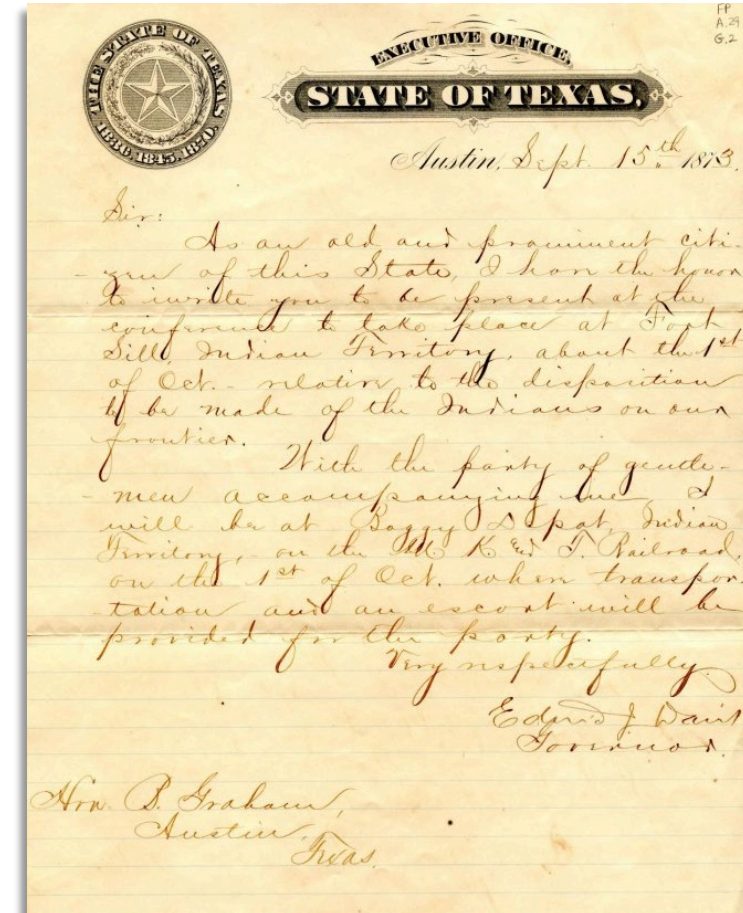 FP
A.29
G.2
THE STATE OF TEXAS.
1836. 1845. 1870.
EXECUTIVE OFFICE,
STATE OF TEXAS,
Austin, Sept. 15th 1873.
Sir:
As an old and prominent citi-
-zen of this State, I have the honor
to invite you to be present at the
conference to take place at Fort
Sill, Indian Territory, about the 1st
of Oct. - relative to the disposition
to be made of the Indians on our
frontier.
With the party of gentle-
-men accompanying me, I
will be at Boggy Depot, Indian
Territory, - on the M K and T. Railroad,
on the 1st of Oct. where transpor-
-tation and an escort will be
provided for the party.
Very respectfully
Edmd J Davis
Governor.
Hon. B. Graham,
Austin,
Texas.